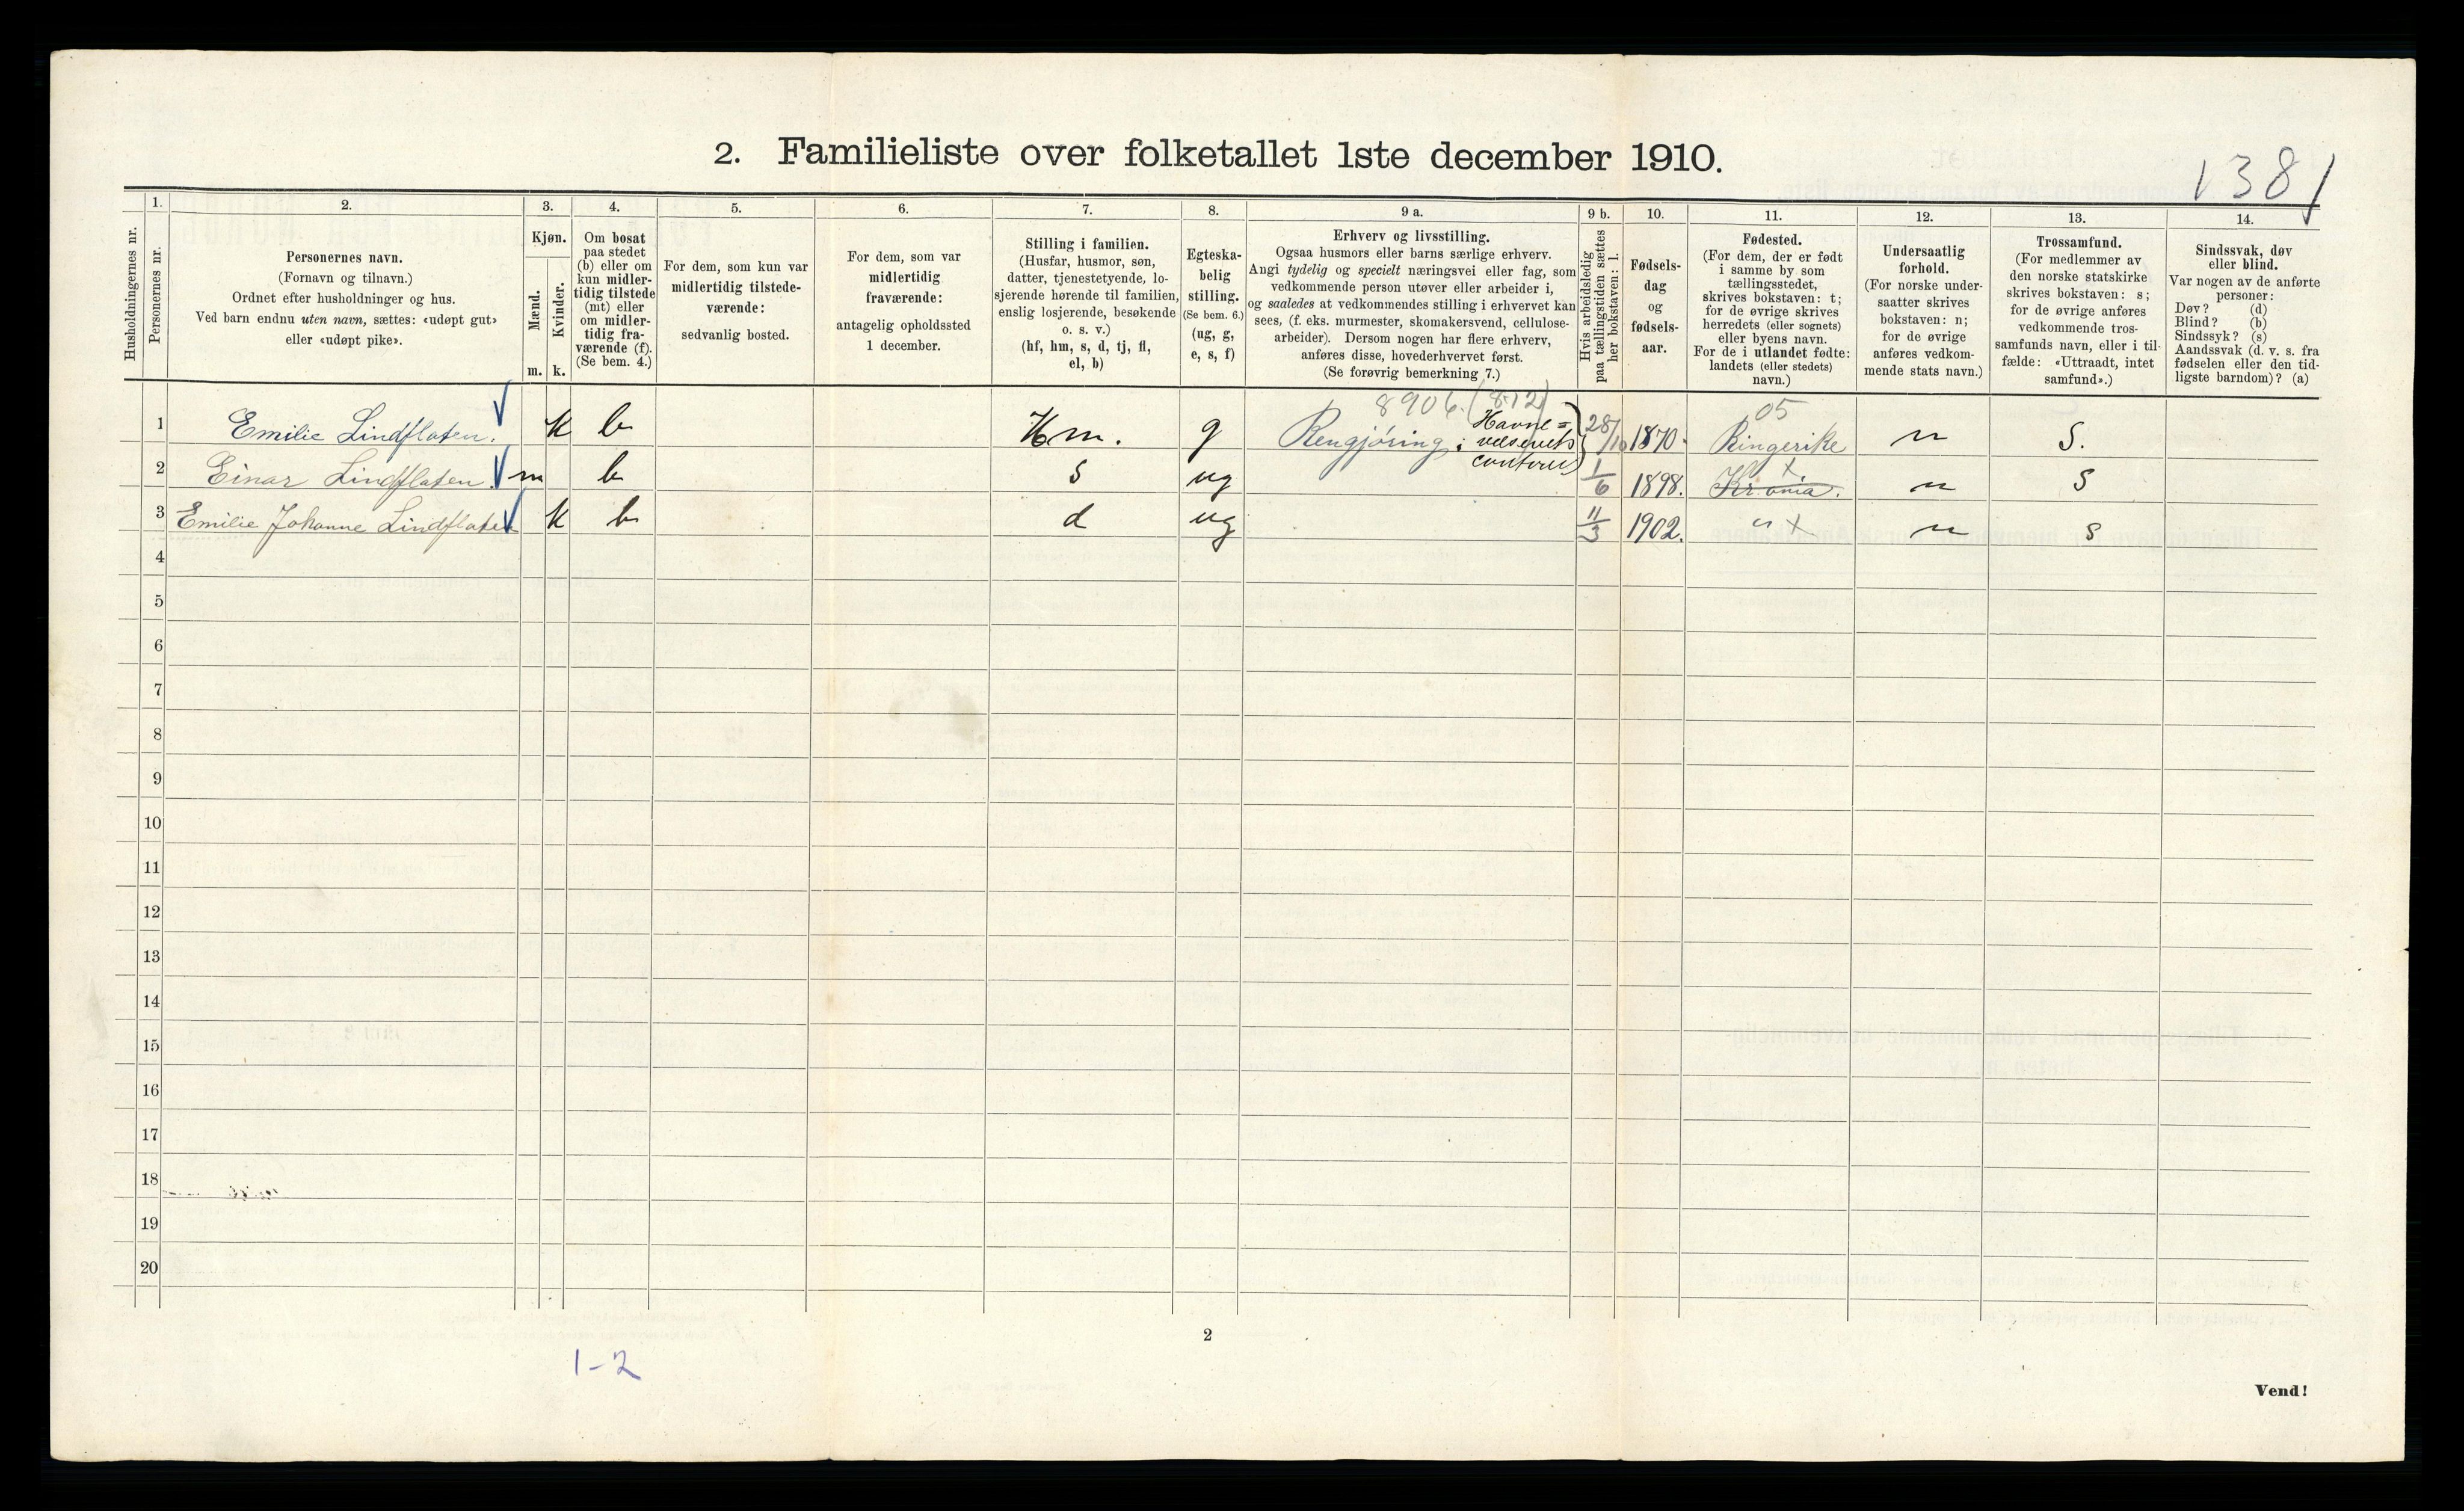 2. Familieliste over folketallet 1ste december 1910.
1381
Husholdningernes nr.
1.
Personernes nr.
2.
Personernes navn.
(Fornavn og tilnavn.)
Ordnet efter husholdninger og hus.
Ved barn endnu uten navn, sættes: «udøpt gut»
eller «udøpt pike».
3.
Kjøn.
Mænd.
Kvinder.
m. k.
4.
Om bosat
paa stedet
(b) eller om
kun midler-
tidig tilstede
(mt) eller
om midler-
tidig fra-
værende (f).
(Se bem. 4.)
5.
For dem, som kun var
midlertidig tilstede-
værende:
sedvanlig bosted.
6.
For dem, som var
midlertidig
fraværende:
antagelig opholdssted
1 december.
7.
Stilling i familien.
(Husfar, husmor, søn,
datter, tjenestetyende, lo-
sjerende hørende til familien,
enslig losjerende, besøkende
o. s. v.)
(hf, hm, s, d, tj, fl,
el, b)
8.
Egteska-
belig
stilling.
(Se bem. 6.)
(ug, g,
e, s, f)
9 a.
Erhverv og livsstilling.
Ogsaa husmors eller barns særlige erhverv.
Angi tydelig og specielt næringsvei eller fag, som
vedkommende person utøver eller arbeider i,
og saaledes at vedkommendes stilling i erhvervet kan
sees, (f. eks. murmester, skomakersvend, cellulose-
arbeider). Dersom nogen har flere erhverv,
anføres disse, hovederhvervet først.
(Se forøvrig bemerkning 7.)
9 b.
Hvis arbeidsledig
paa tællingstiden sættes
her bokstaven: l.
10.
Fødsels-
dag
og
fødsels-
aar.
11.
Fødested.
(For dem, der er født
i samme by som
tællingsstedet,
skrives bokstaven: t;
for de øvrige skrives
herredets (eller sognets)
eller byens navn.
For de i utlandet fødte:
landets (eller stedets)
navn.)
12.
Undersaatlig
forhold.
(For norske under-
saatter skrives
bokstaven: n;
for de øvrige
anføres vedkom-
mende stats navn.)
13.
Trossamfund.
(For medlemmer av
den norske statskirke
skrives bokstaven: s;
for de øvrige anføres
vedkommende tros-
samfunds navn, eller i til-
fælde: «Uttraadt, intet
samfund».)
14.
Sindssvak, døv
eller blind.
Var nogen av de anførte
personer:
Døv? (d)
Blind? (b)
Sindssyk? (s)
Aandssvak (d. v. s. fra
fødselen eller den tid-
ligste barndom)? (a)
8906 (812) 05
1 Emilie Lindflaten. k b Hm. g Rengjøring i Havne=
væsenets
contorer 28/10 1870. Ringerike n S.
2 Einar Lindflaten. m b s ug 1/6 1898. Kr.ania. x n S
3 Emilie Johanne Lindflaten k b d ug 11/3 1902. " x n S
4
5
6
7
8
9
10
11
12
13
14
15
16
17
18
19
20
2
1-2
Vend!